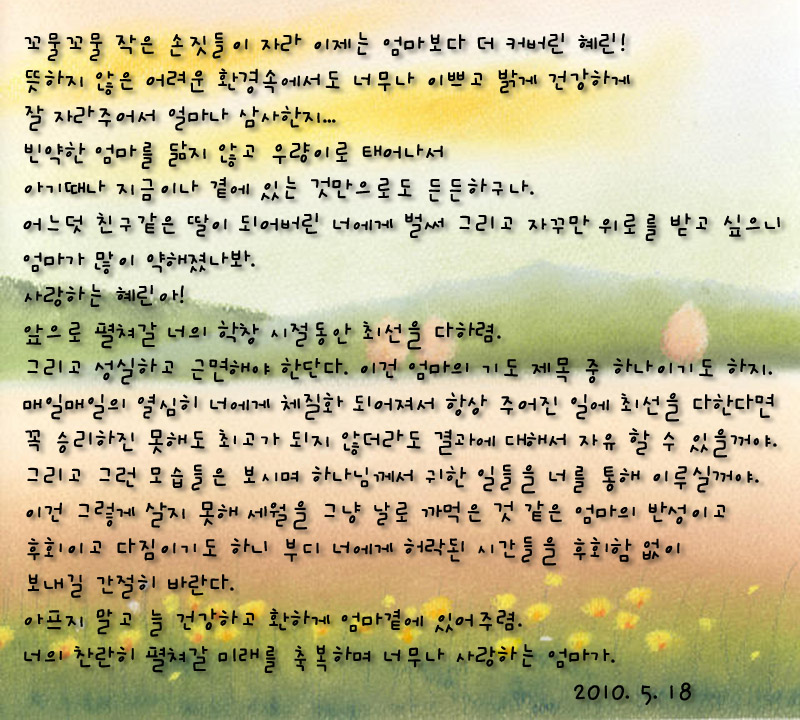 꼬물꼬물 작은 손짓들이 자라 이제는 엄마보다 더 커버린 혜린!
뜻하지 않은 어려운 환경속에서도 너무나 이쁘고 밝게 건강하게
잘 자라주어서 얼마나 감사한지...
빈약한 엄마를 닮지 않고 우량이로 태어나서
아기때나 지금이나 곁에 있는 것만으로도 든든하구나.
어느덧 친구같은 딸이 되어버린 너에게 벌써 그리고 자꾸만 위로를 받고 싶으니
엄마가 많이 약해졌나봐.
사랑하는 혜린아!
앞으로 펼쳐갈 너의 학창 시절동안 최선을 다하렴.
그리고 성실하고 근면해야 한단다. 이건 엄마의 기도 제목 중 하나이기도 하지.
매일매일의 열심히 너에게 체질화 되어져서 항상 주어진 일에 최선을 다한다면
꼭 승리하진 못해도 최고가 되지 않더라도 결과에 대해서 자유 할 수 있을꺼야.
그리고 그런 모습들은 보시며 하나님께서 귀한 일들을 너를 통해 이루실꺼야.
이건 그렇게 살지 못해 세월을 그냥 날로 까먹은 것 같은 엄마의 반성이고
후회이고 다짐이기도 하니 부디 너에게 허락된 시간들을 후회함 없이
보내길 간절히 바란다.
아프지 말고 늘 건강하고 환하게 엄마곁에 있어주렴.
너의 찬란히 펼쳐갈 미래를 축복하며 너무나 사랑하는 엄마가.
2010. 5. 18